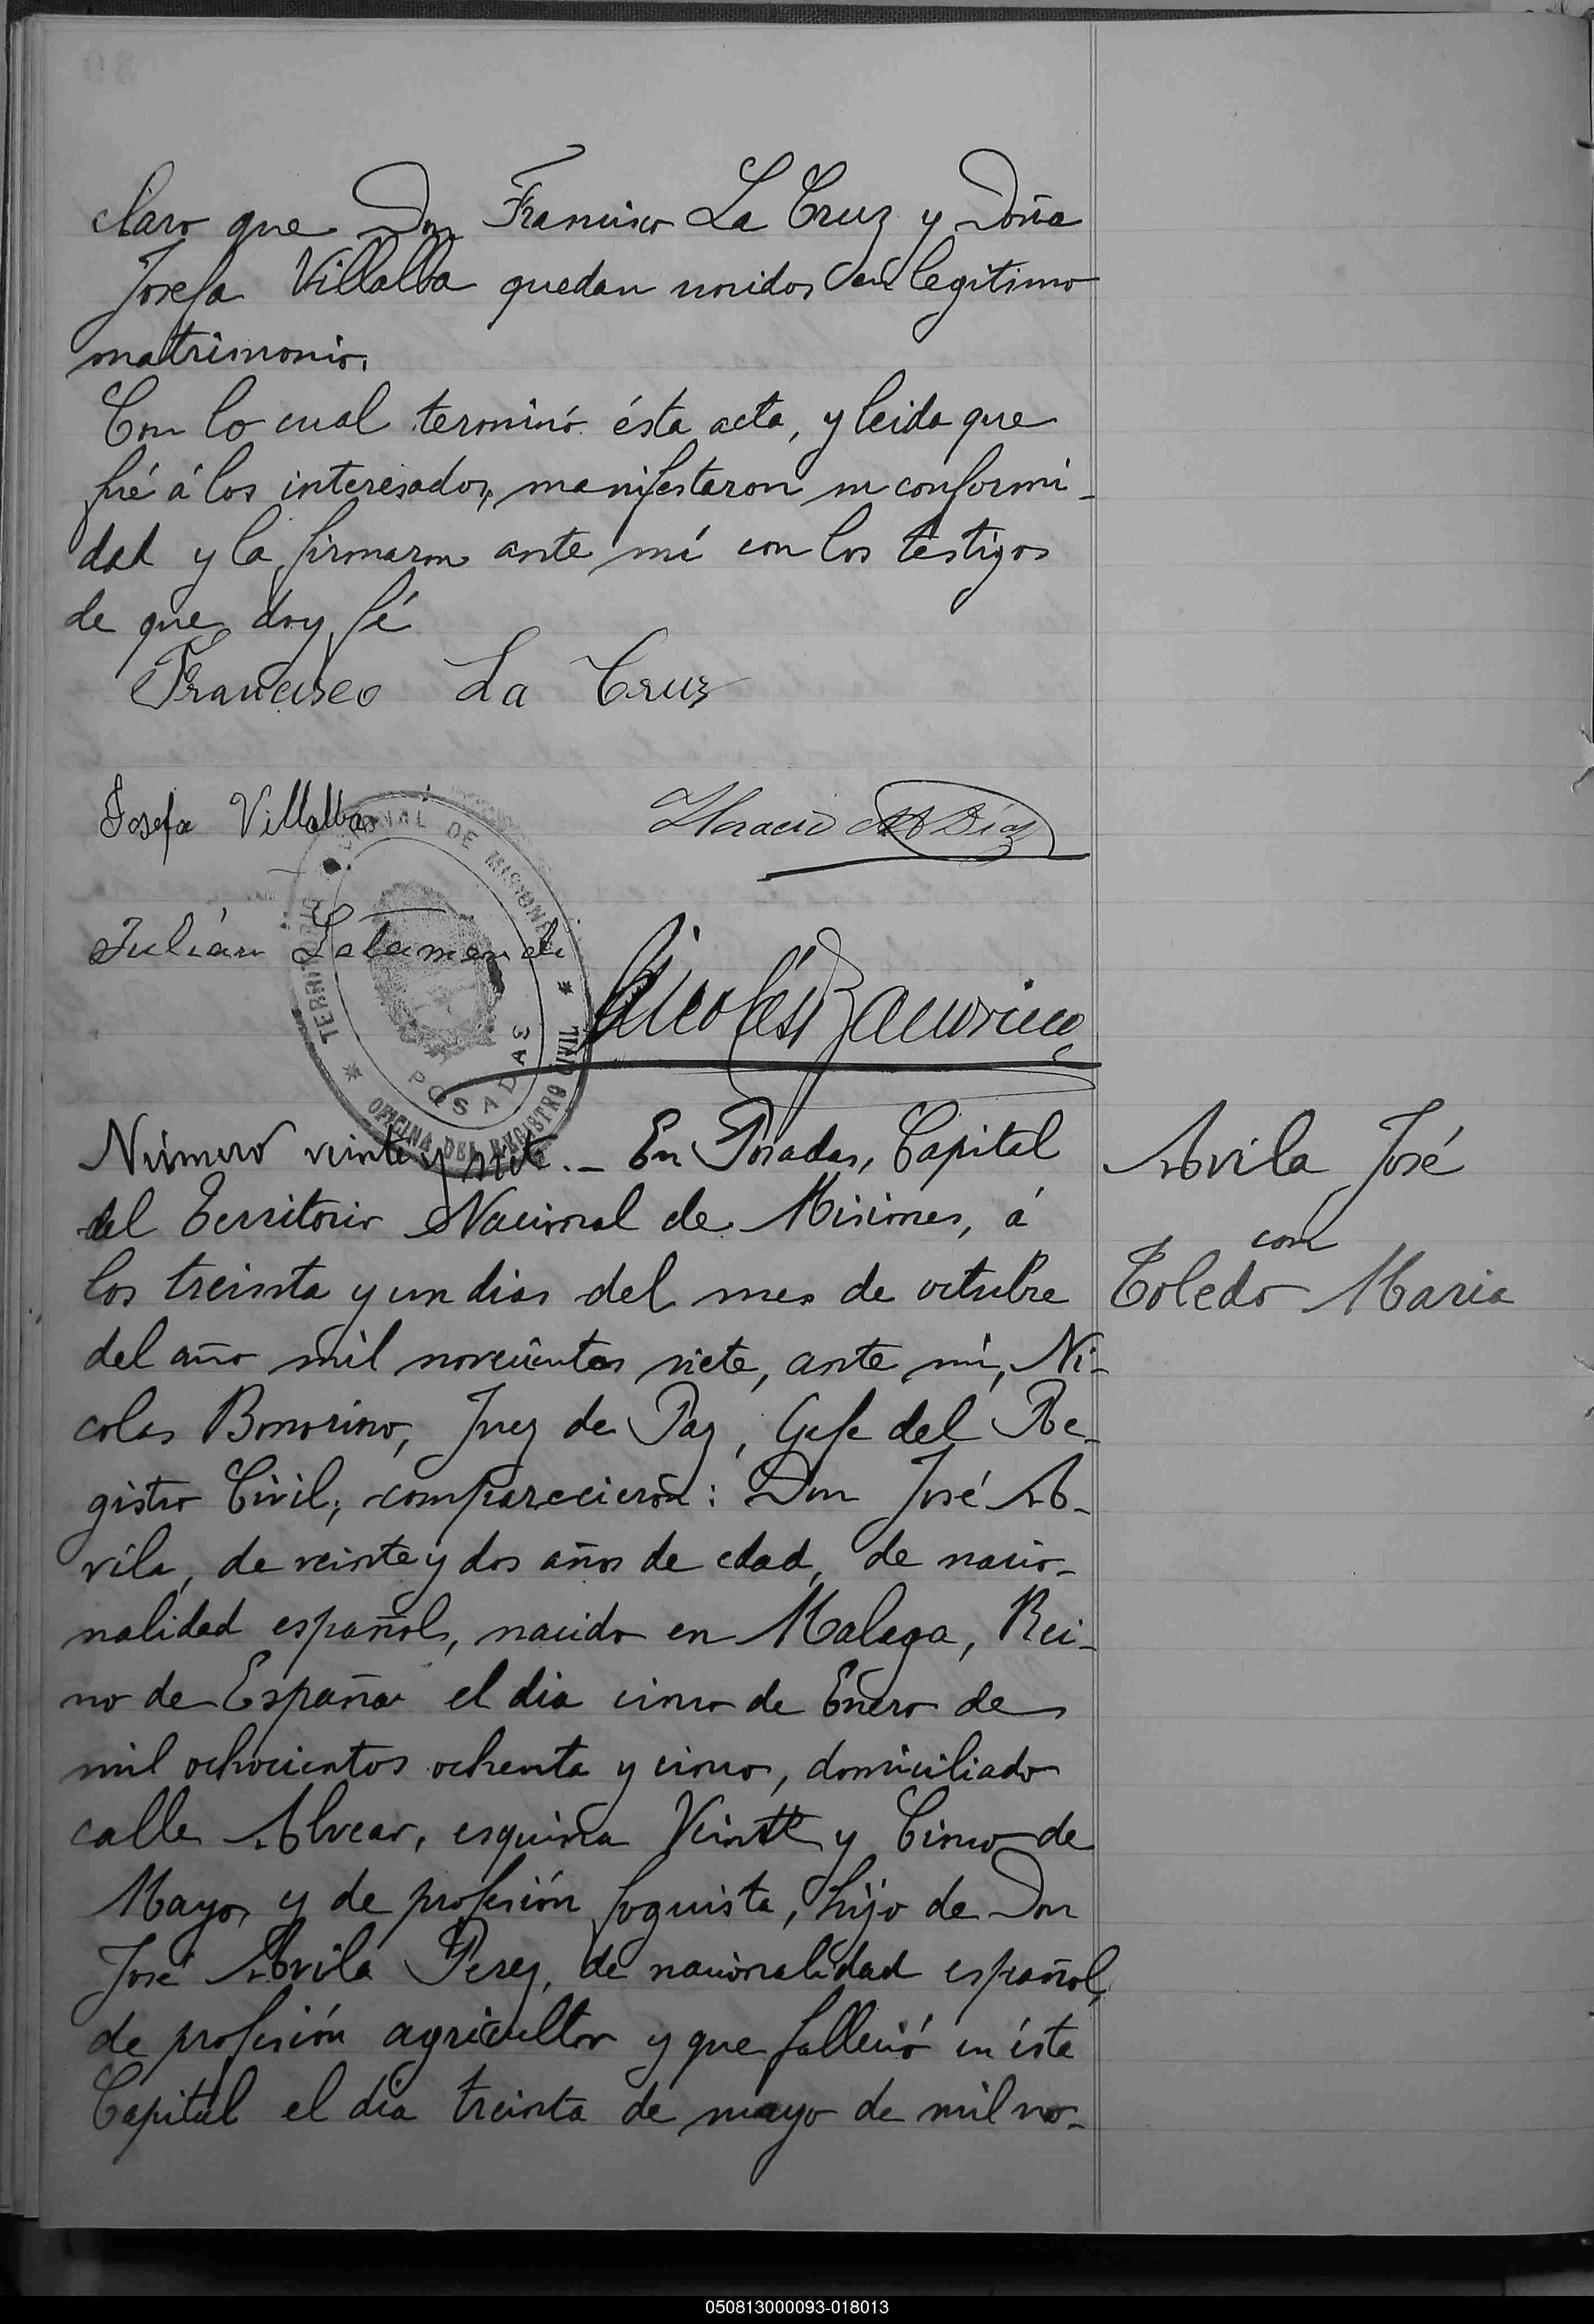 claro que Don Francisco La Cruz y Doña
Josefa Villalba quedan unidos en legítimo
matrimonio.
Con lo cual terminó ésta acta, y leida que
fué á los interesados, manifestaron su conformi-
dad y la firmaron ante mí con los testigos
de que doy fé
Francisco La Cruz
Josefa Villalba
Horacio Díaz
Julián Latamendi
Nicolás Bonorino
TERRITORIO NACIONAL DE MISIONES
OFICINA DEL REGISTRO CIVIL
POSADAS
Número veinte y siete.- En Posadas, Capital
del Territorio Nacional de Misiones, á
los treinta y un dias del mes de octubre
del año mil novecientos siete, ante mí, Ni-
colas Bonorino, Juez de Paz, Gefe del Re-
gistro Civil, comparecieron: Don José A-
vila, de veinte y dos años de edad, de nacio-
nalidad español, nacido en Malaga, Rei-
no de España el dia cinco de Enero de
mil ochocientos ochenta y cinco, domiciliado
calle Alvear, esquina Veinte y Cinco de
Mayo, y de profesión foguista, hijo de Don
José Avila Perez, de nacionalidad español,
de profesión agricultor y que falleció en ésta
Capital el día treinta de mayo de mil no-
Avila José
con
Toledo Maria
050813000093-018013